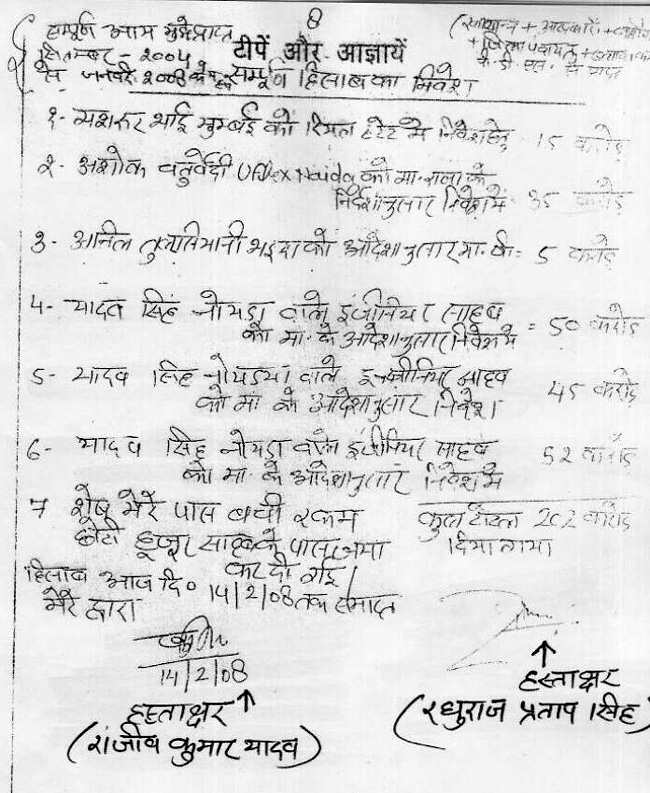 8
सम्पूर्ण आय
सितम्बर - 2004
टीपें और आज्ञायें
से जनवरी 2008 के सम्पूर्ण हिसाब का निवेश
१- मशरूर भाई मुम्बई को रियल स्टेट में निवेश हेतु - 15 करोड़
२- अशोक चतुर्वेदी Uflex Noida को मा. राजा के
निर्देशानुसार निवेश में - 35 करोड़
3- अनिल तुलसियानी भइया को आदेशानुसार मा. के = 5 करोड़
4- यादव सिंह नोयडा वाले इंजीनियर साहब
को मा. के आदेशानुसार निवेश में = 50 करोड़
5- यादव सिंह नोयडा वाले इन्जीनियर साहब
को मा के आदेशानुसार निवेश। 45 करोड़
6- यादव सिंह नोयडा वाले इंजीनियर साहब
को मा. के आदेशानुसार निवेश में 52 करोड़
7 शेष मेरे पास बची रकम कुल टोटल 202 करोड़
छोटी हुजूर साहब के पास जमा दिया गया
कर दी गई।
हिसाब आज दि० 14/2/08 तक समाप्त
मेरे द्वारा
14/2/08
हस्ताक्षर
(राजीव कुमार यादव)
हस्ताक्षर
(रघुराज प्रताप सिंह)